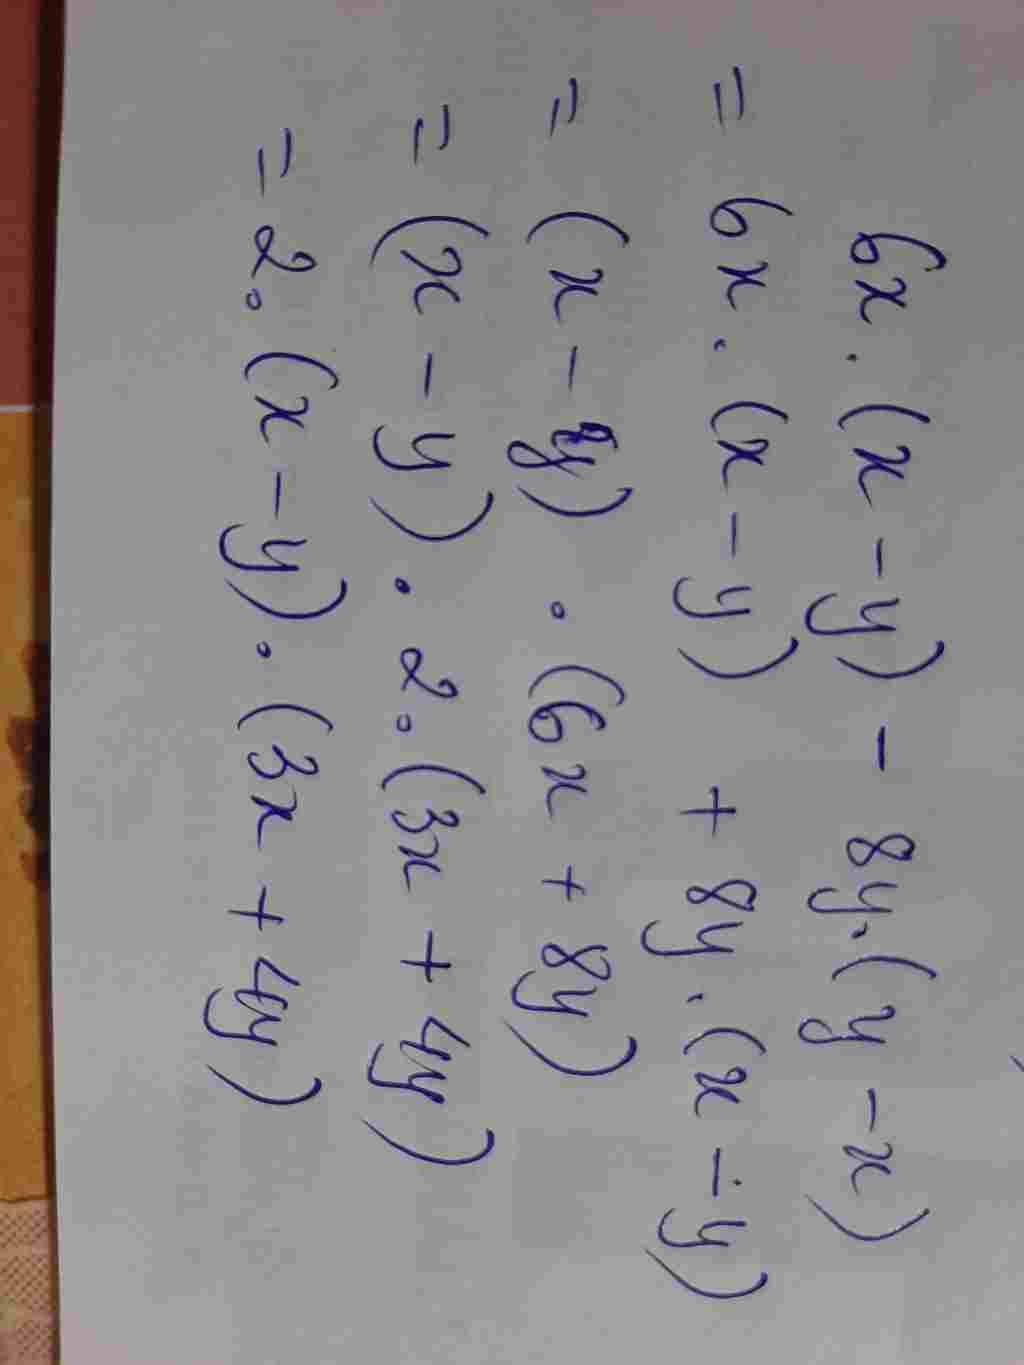 6x . (x - y) - 8y . (y - x)
= 6x . (x - y) + 8y . (x - y)
= (x - y) . (6x + 8y)
= (x - y) . 2 . (3x + 4y)
= 2 . (x - y) . (3x + 4y)